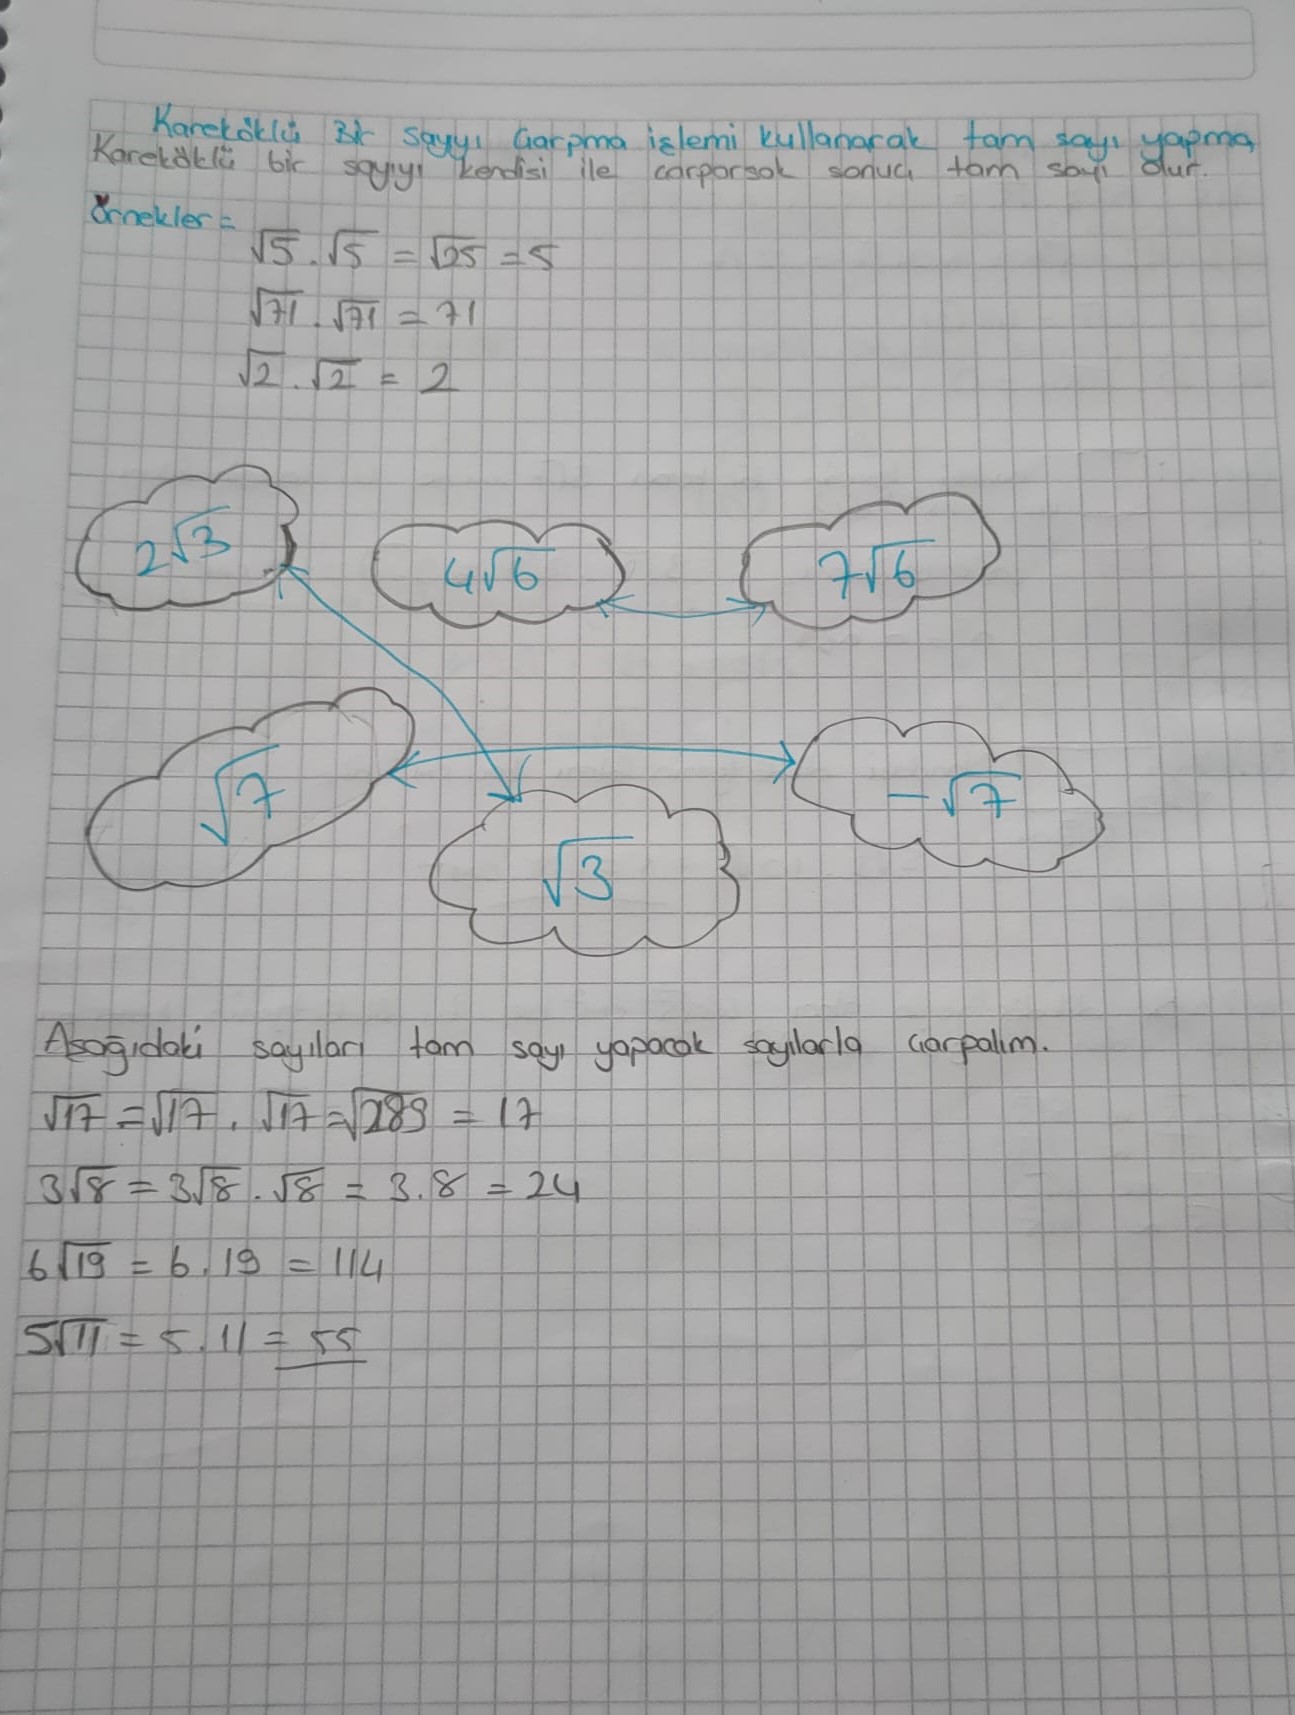 Kareköklü Bir sayıyı Çarpma işlemi kullanarak tam sayı yapma
Kareköklü bir sayıyı kendisi ile çarparsak sonuç tam sayı olur.
Örnekler =
√5 . √5 = √25 = 5
√71 . √71 = 71
√2 . √2 = 2
2√3
4√6
7√6
√7
-√7
√3
Aşağıdaki sayıları tam sayı yapacak sayılarla çarpalım.
√17 = √17 . √17 = √289 = 17
3√8 = 3√8 . √8 = 3.8 = 24
6√19 = 6.19 = 114
5√11 = 5.11 = 55